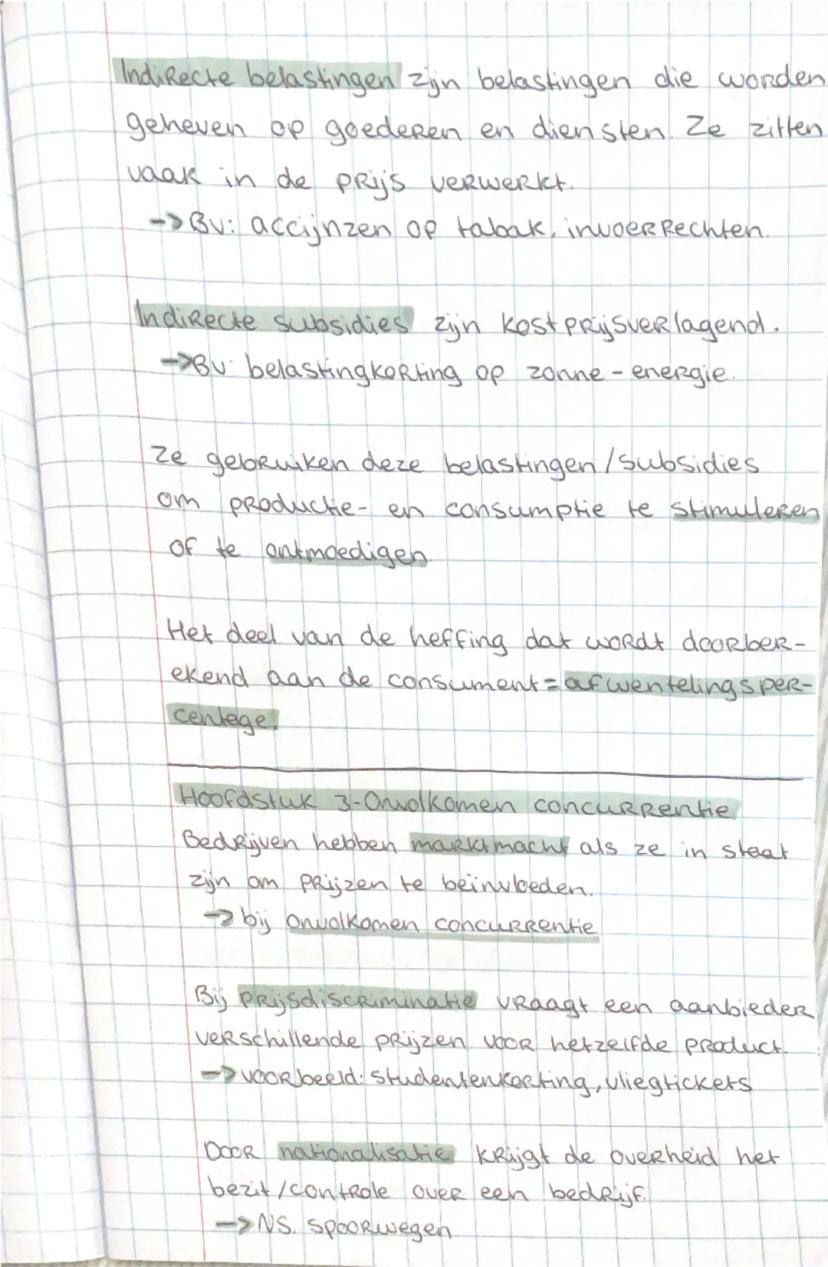 Indirecte belastingen zijn belastingen die worden
geheven op goederen en diensten. Ze zitten
vaak in de prijs verwerkt.
-> Bv: accijnzen op tabak, invoerrechten.
Indirecte subsidies zijn kostprijsverlagend.
-> Bv: belastingkorting op zonne-energie.
Ze gebruiken deze belastingen/subsidies
om productie- en consumptie te stimuleren
of te ontmoedigen
Het deel van de heffing dat wordt doorber-
ekend aan de consument = afwentelingsper-
centege.
Hoofdstuk 3-Onvolkomen concurrentie
Bedrijven hebben marktmacht als ze in staat
zijn om prijzen te beïnvloeden.
-> bij onvolkomen concurrentie
Bij prijsdiscriminatie vraagt een aanbieder
verschillende prijzen voor hetzelfde product.
-> voorbeeld: studentenkorting, vliegtickets
Door nationalisatie krijgt de overheid het
bezit/controle over een bedrijf.
-> NS. spoorwegen